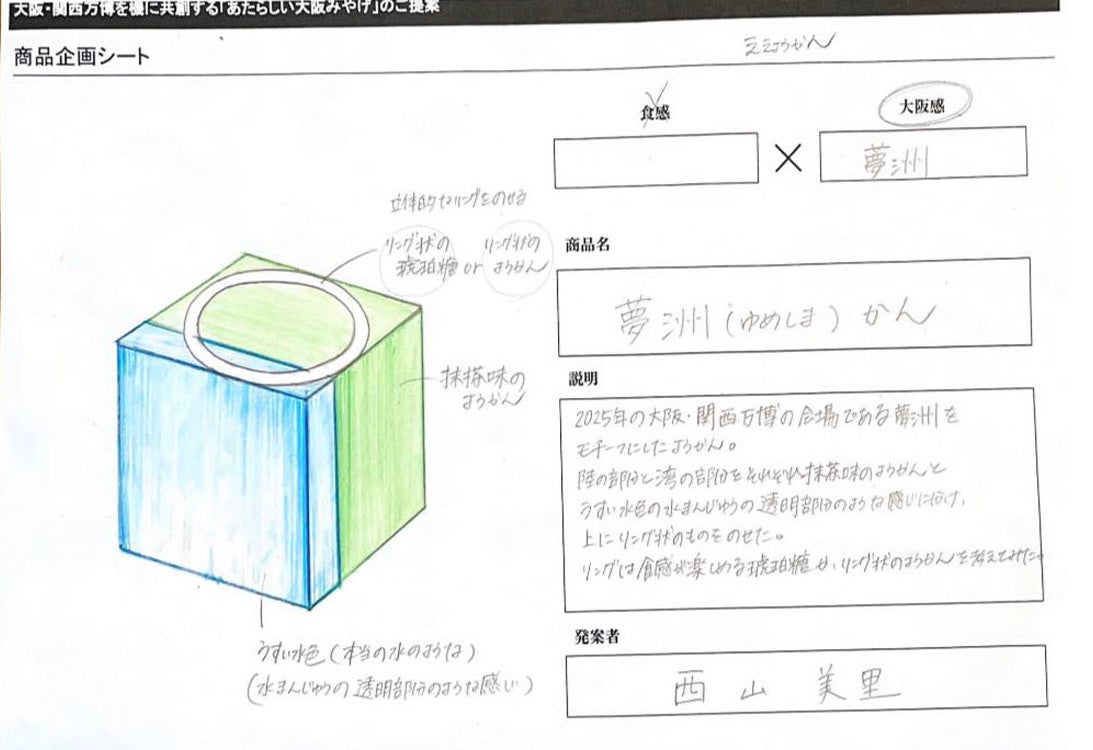 大阪・関西万博を機に共創する「あたらしい大阪みやげ」のご提案
商品企画シート
ええようかん
食感
大阪感
×
夢洲
立体的なリングをのせる
リング状の
琥珀糖 or リング状の
ようかん
抹茶味の
ようかん
うすい水色(本当の水のような)
(水まんじゅうの透明部分のような感じ)
商品名
夢洲(ゆめしま)かん
説明
2025年の大阪・関西万博の会場である夢洲を
モチーフにしたようかん。
陸の部分と湾の部分をそれぞれ抹茶味のようかんと
うすい水色の水まんじゅうの透明部分のような感じに分け、
上にリング状のものをのせた。
リングは食感が楽しめる琥珀糖か、リング状のようかんを考えてみた。
発案者
西山 美里